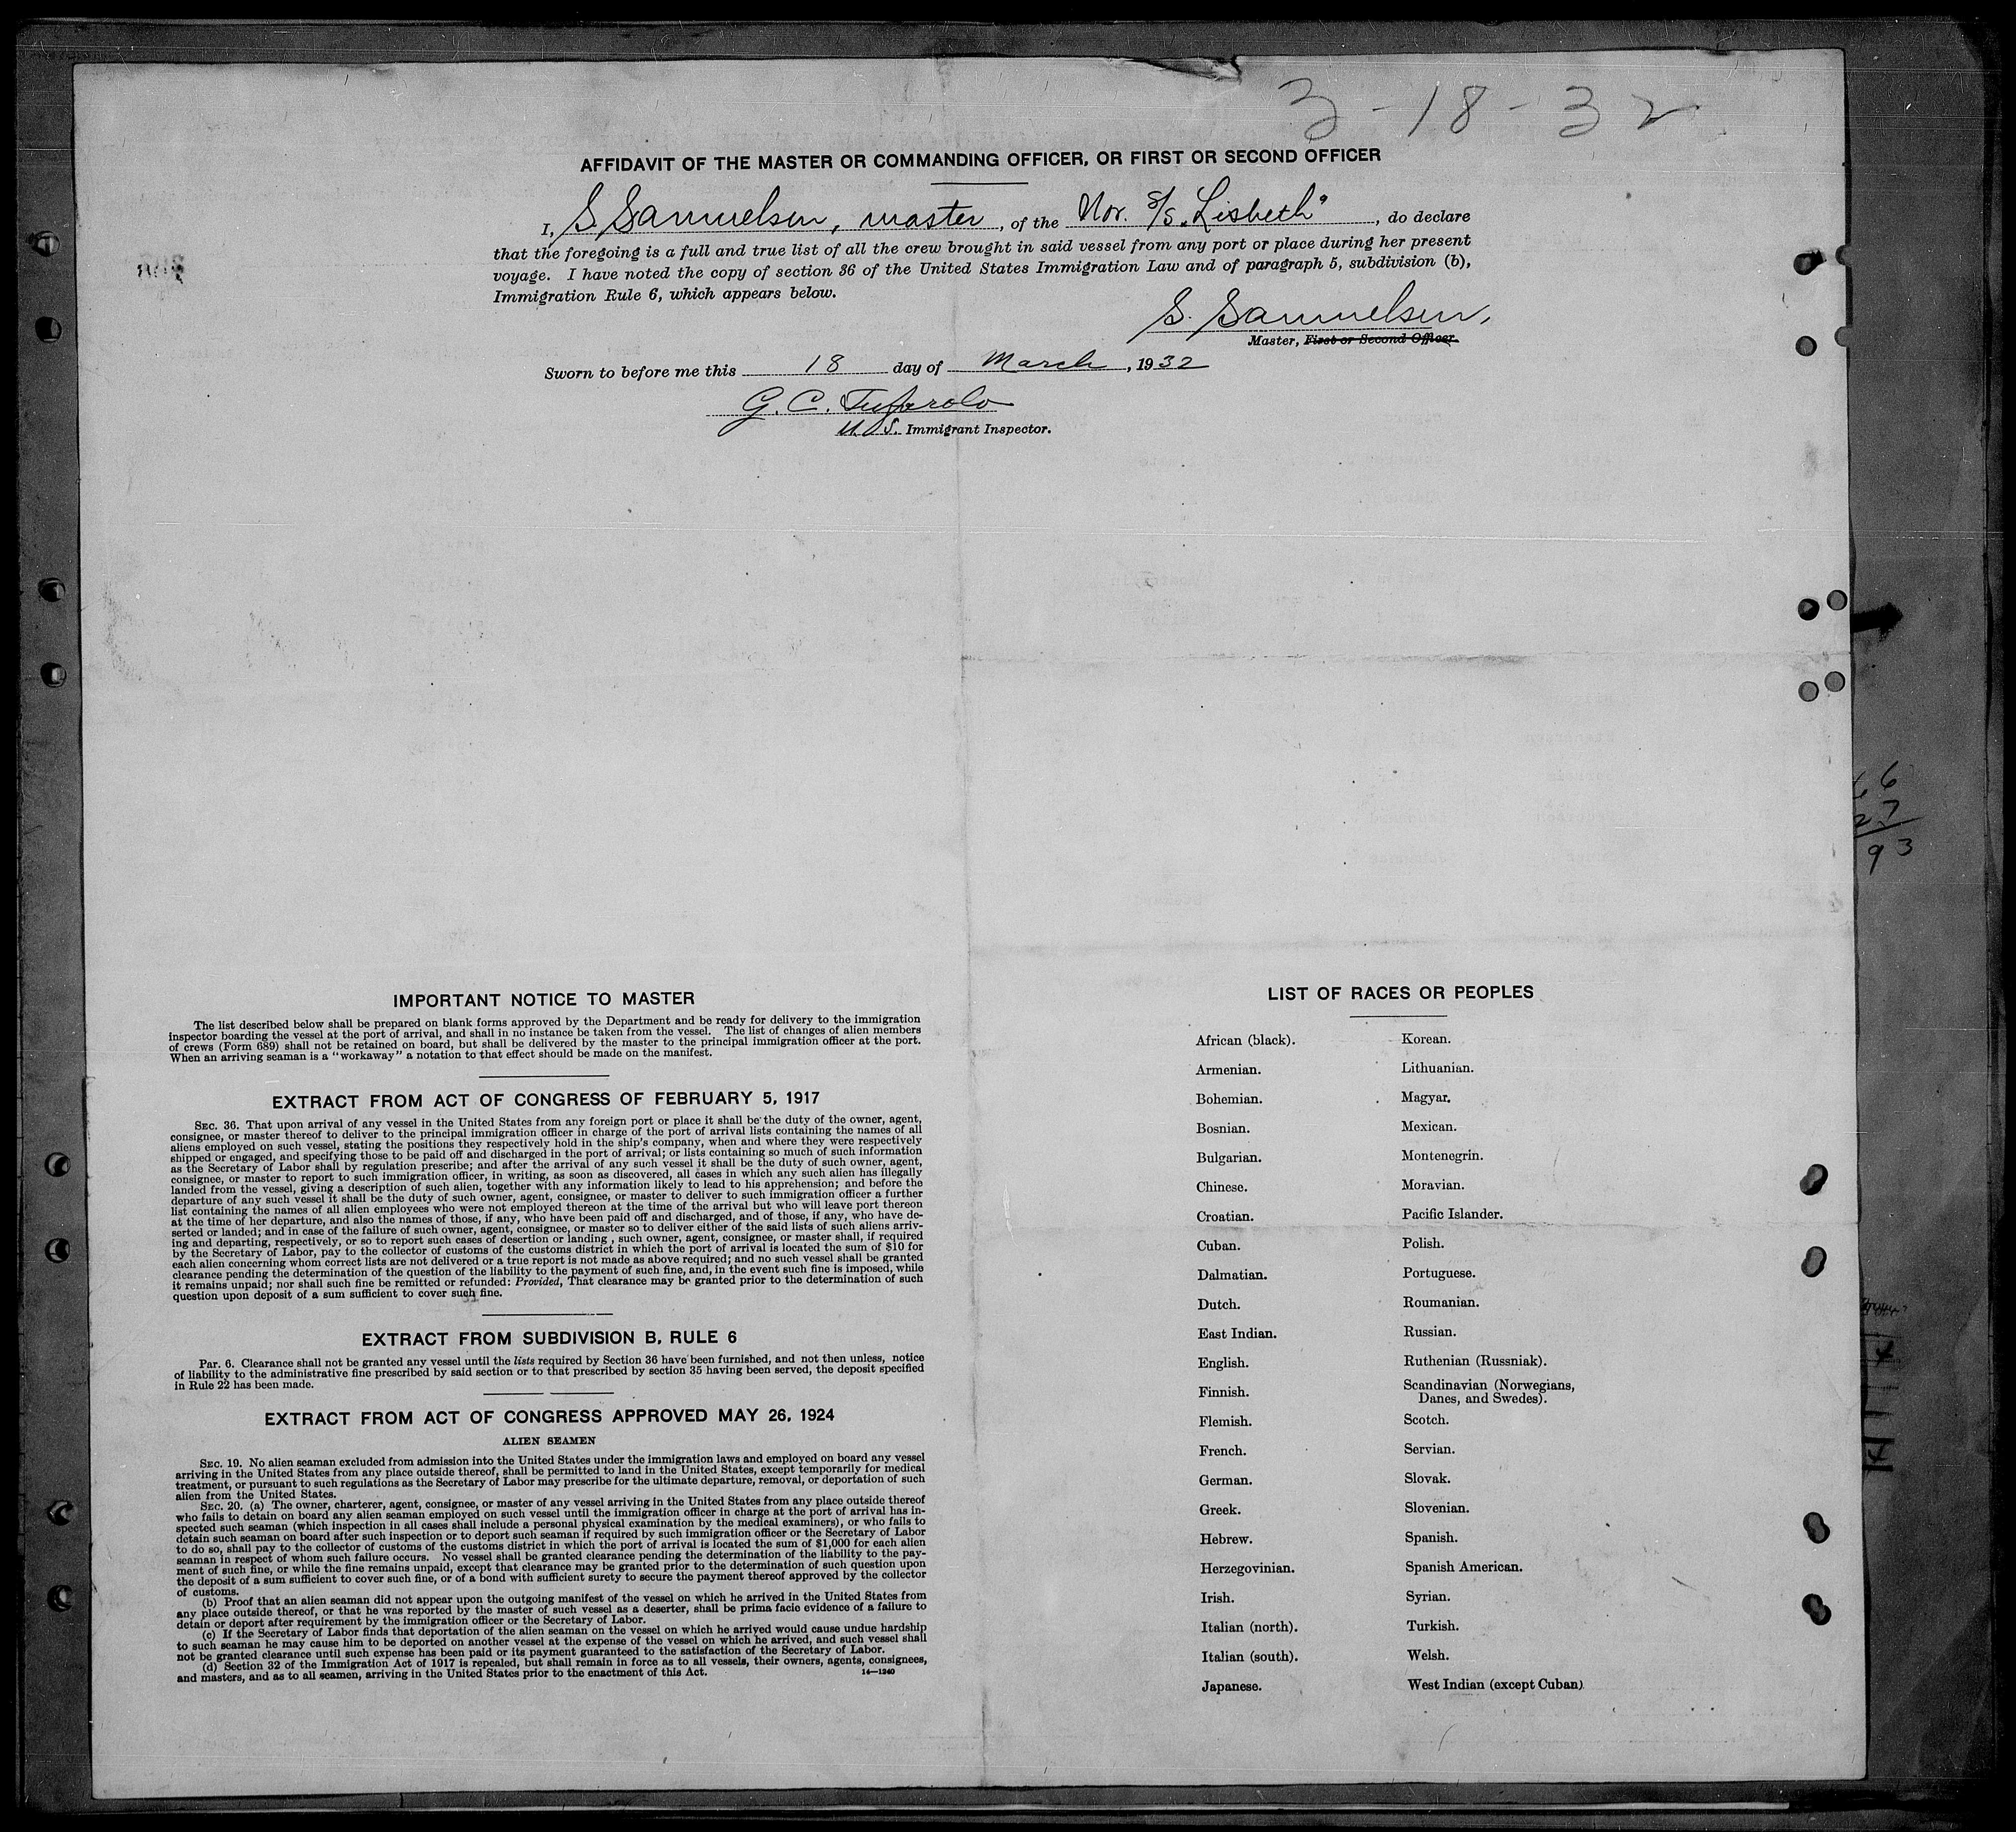 3-18-32
AFFIDAVIT OF THE MASTER OR COMMANDING OFFICER, OR FIRST OR SECOND OFFICER
I, S. Samuelsen, master, of the Nor. S/S. „Lisbeth", do declare
that the foregoing is a full and true list of all the crew brought in said vessel from any port or place during her present
voyage. I have noted the copy of section 36 of the United States Immigration Law and of paragraph 5, subdivision (b),
Immigration Rule 6, which appears below.
S. Samuelsen,
Master, First or Second Officer.
Sworn to before me this 18 day of March, 1932
G. C.
U.S. Immigrant Inspector.
6
27
93
IMPORTANT NOTICE TO MASTER
The list described below shall be prepared on blank forms approved by the Department and be ready for delivery to the immigration
inspector boarding the vessel at the port of arrival, and shall in no instance be taken from the vessel. The list of changes of alien members
of crews (Form 689) shall not be retained on board, but shall be delivered by the master to the principal immigration officer at the port.
When an arriving seaman is a "workaway" a notation to that effect should be made on the manifest.
EXTRACT FROM ACT OF CONGRESS OF FEBRUARY 5, 1917
SEC. 36. That upon arrival of any vessel in the United States from any foreign port or place it shall be the duty of the owner, agent,
consignee, or master thereof to deliver to the principal immigration officer in charge of the port of arrival lists containing the names of all
aliens employed on such vessel, stating the positions they respectively hold in the ship's company, when and where they were respectively
shipped or engaged, and specifying those to be paid off and discharged in the port of arrival; or lists containing so much of such information
as the Secretary of Labor shall by regulation prescribe; and after the arrival of any such vessel it shall be the duty of such owner, agent,
consignee, or master to report to such immigration officer, in writing, as soon as discovered, all cases in which any such alien has illegally
landed from the vessel, giving a description of such alien, together with any information likely to lead to his apprehension; and before the
departure of any such vessel it shall be the duty of such owner, agent, consignee, or master to deliver to such immigration officer a further
list containing the names of all alien employees who were not employed thereon at the time of the arrival but who will leave port thereon
at the time of her departure, and also the names of those, if any, who have been paid off and discharged, and of those, if any, who have de-
serted or landed; and in case of the failure of such owner, agent, consignee, or master so to deliver either of the said lists of such aliens arriv-
ing and departing, respectively, or so to report such cases of desertion or landing , such owner, agent, consignee, or master shall, if required
by the Secretary of Labor, pay to the collector of customs of the customs district in which the port of arrival is located the sum of $10 for
each alien concerning whom correct lists are not delivered or a true report is not made as above required; and no such vessel shall be granted
clearance pending the determination of the question of the liability to the payment of such fine, and, in the event such fine is imposed, while
it remains unpaid; nor shall such fine be remitted or refunded: Provided, That clearance may be granted prior to the determination of such
question upon deposit of a sum sufficient to cover such fine.
EXTRACT FROM SUBDIVISION B, RULE 6
Par. 6. Clearance shall not be granted any vessel until the lists required by Section 36 have been furnished, and not then unless, notice
of liability to the administrative fine prescribed by said section or to that prescribed by section 35 having been served, the deposit specified
in Rule 22 has been made.
EXTRACT FROM ACT OF CONGRESS APPROVED MAY 26, 1924
ALIEN SEAMEN
SEC. 19. No alien seaman excluded from admission into the United States under the immigration laws and employed on board any vessel
arriving in the United States from any place outside thereof, shall be permitted to land in the United States, except temporarily for medical
treatment, or pursuant to such regulations as the Secretary of Labor may prescribe for the ultimate departure, removal, or deportation of such
alien from the United States.
SEC. 20. (a) The owner, charterer, agent, consignee, or master of any vessel arriving in the United States from any place outside thereof
who fails to detain on board any alien seaman employed on such vessel until the immigration officer in charge at the port of arrival has in-
spected such seaman (which inspection in all cases shall include a personal physical examination by the medical examiners), or who fails to
detain such seaman on board after such inspection or to deport such seaman if required by such immigration officer or the Secretary of Labor
to do so, shall pay to the collector of customs of the customs district in which the port of arrival is located the sum of $1,000 for each alien
seaman in respect of whom such failure occurs. No vessel shall be granted clearance pending the determination of the liability to the pay-
ment of such fine, or while the fine remains unpaid, except that clearance may be granted prior to the determination of such question upon
the deposit of a sum sufficient to cover such fine, or of a bond with sufficient surety to secure the payment thereof approved by the collector
of customs.
(b) Proof that an alien seaman did not appear upon the outgoing manifest of the vessel on which he arrived in the United States from
any place outside thereof, or that he was reported by the master of such vessel as a deserter, shall be prima facie evidence of a failure to
detain or deport after requirement by the immigration officer or the Secretary of Labor.
(c) If the Secretary of Labor finds that deportation of the alien seaman on the vessel on which he arrived would cause undue hardship
to such seaman he may cause him to be deported on another vessel at the expense of the vessel on which he arrived, and such vessel shall
not be granted clearance until such expense has been paid or its payment guaranteed to the satisfaction of the Secretary of Labor.
(d) Section 32 of the Immigration Act of 1917 is repealed, but shall remain in force as to all vessels, their owners, agents, consignees,
and masters, and as to all seamen, arriving in the United States prior to the enactment of this Act.
14—1240
LIST OF RACES OR PEOPLES
African (black).
Armenian.
Bohemian.
Bosnian.
Bulgarian.
Chinese.
Croatian.
Cuban.
Dalmatian.
Dutch.
East Indian.
English.
Finnish.
Flemish.
French.
German.
Greek.
Hebrew.
Herzegovinian.
Irish.
Italian (north).
Italian (south).
Japanese.
Korean.
Lithuanian.
Magyar.
Mexican.
Montenegrin.
Moravian.
Pacific Islander.
Polish.
Portuguese.
Roumanian.
Russian.
Ruthenian (Russniak).
Scandinavian (Norwegians,
Danes, and Swedes).
Scotch.
Servian.
Slovak.
Slovenian.
Spanish.
Spanish American.
Syrian.
Turkish.
Welsh.
West Indian (except Cuban)